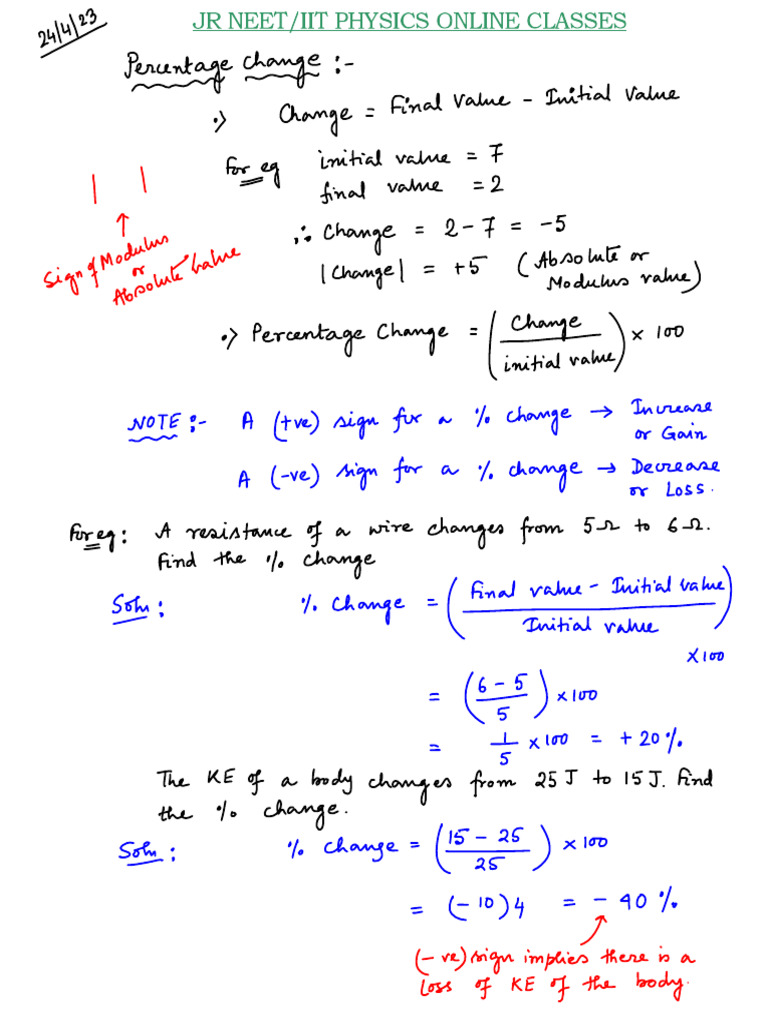 JR NEET/IIT PHYSICS ONLINE CLASSES
24/4/23
Percentage Change :-
•> Change = Final Value - Initial Value
For eg initial value = 7
final value = 2
∴ Change = 2 - 7 = -5
|Change| = +5 (Absolute or
Modulus value)
| |
↑
Sign of Modulus
or
Absolute Value
•> Percentage Change = (Change / initial value) × 100
NOTE :- A (+ve) sign for a % change → Increase
or Gain
A (-ve) sign for a % change → Decrease
or Loss.
For eg : A resistance of a wire changes from 5Ω to 6Ω.
Find the % change
Soln : % Change = (Final value - Initial value / Initial value)
×100
= (6 - 5 / 5) ×100
= 1/5 ×100 = + 20%.
The KE of a body changes from 25 J to 15 J. Find
the % change.
Soln : % Change = (15 - 25 / 25) × 100
= (-10)4 = - 40 %.
(-ve) sign implies there is a
Loss of KE of the body.